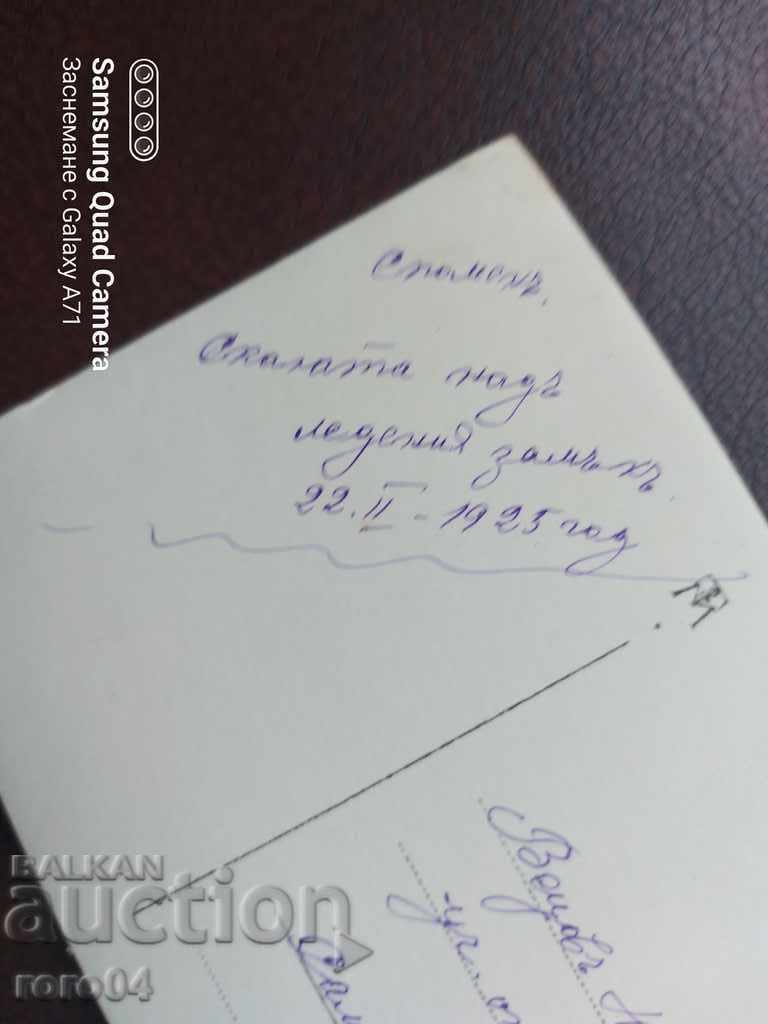 Samsung Quad Camera
Заснемане с Galaxy A71
Споменъ.
Скалата надъ
ледения замъкъ.
22. II - 1925 год
BALKAN
auction
roro04